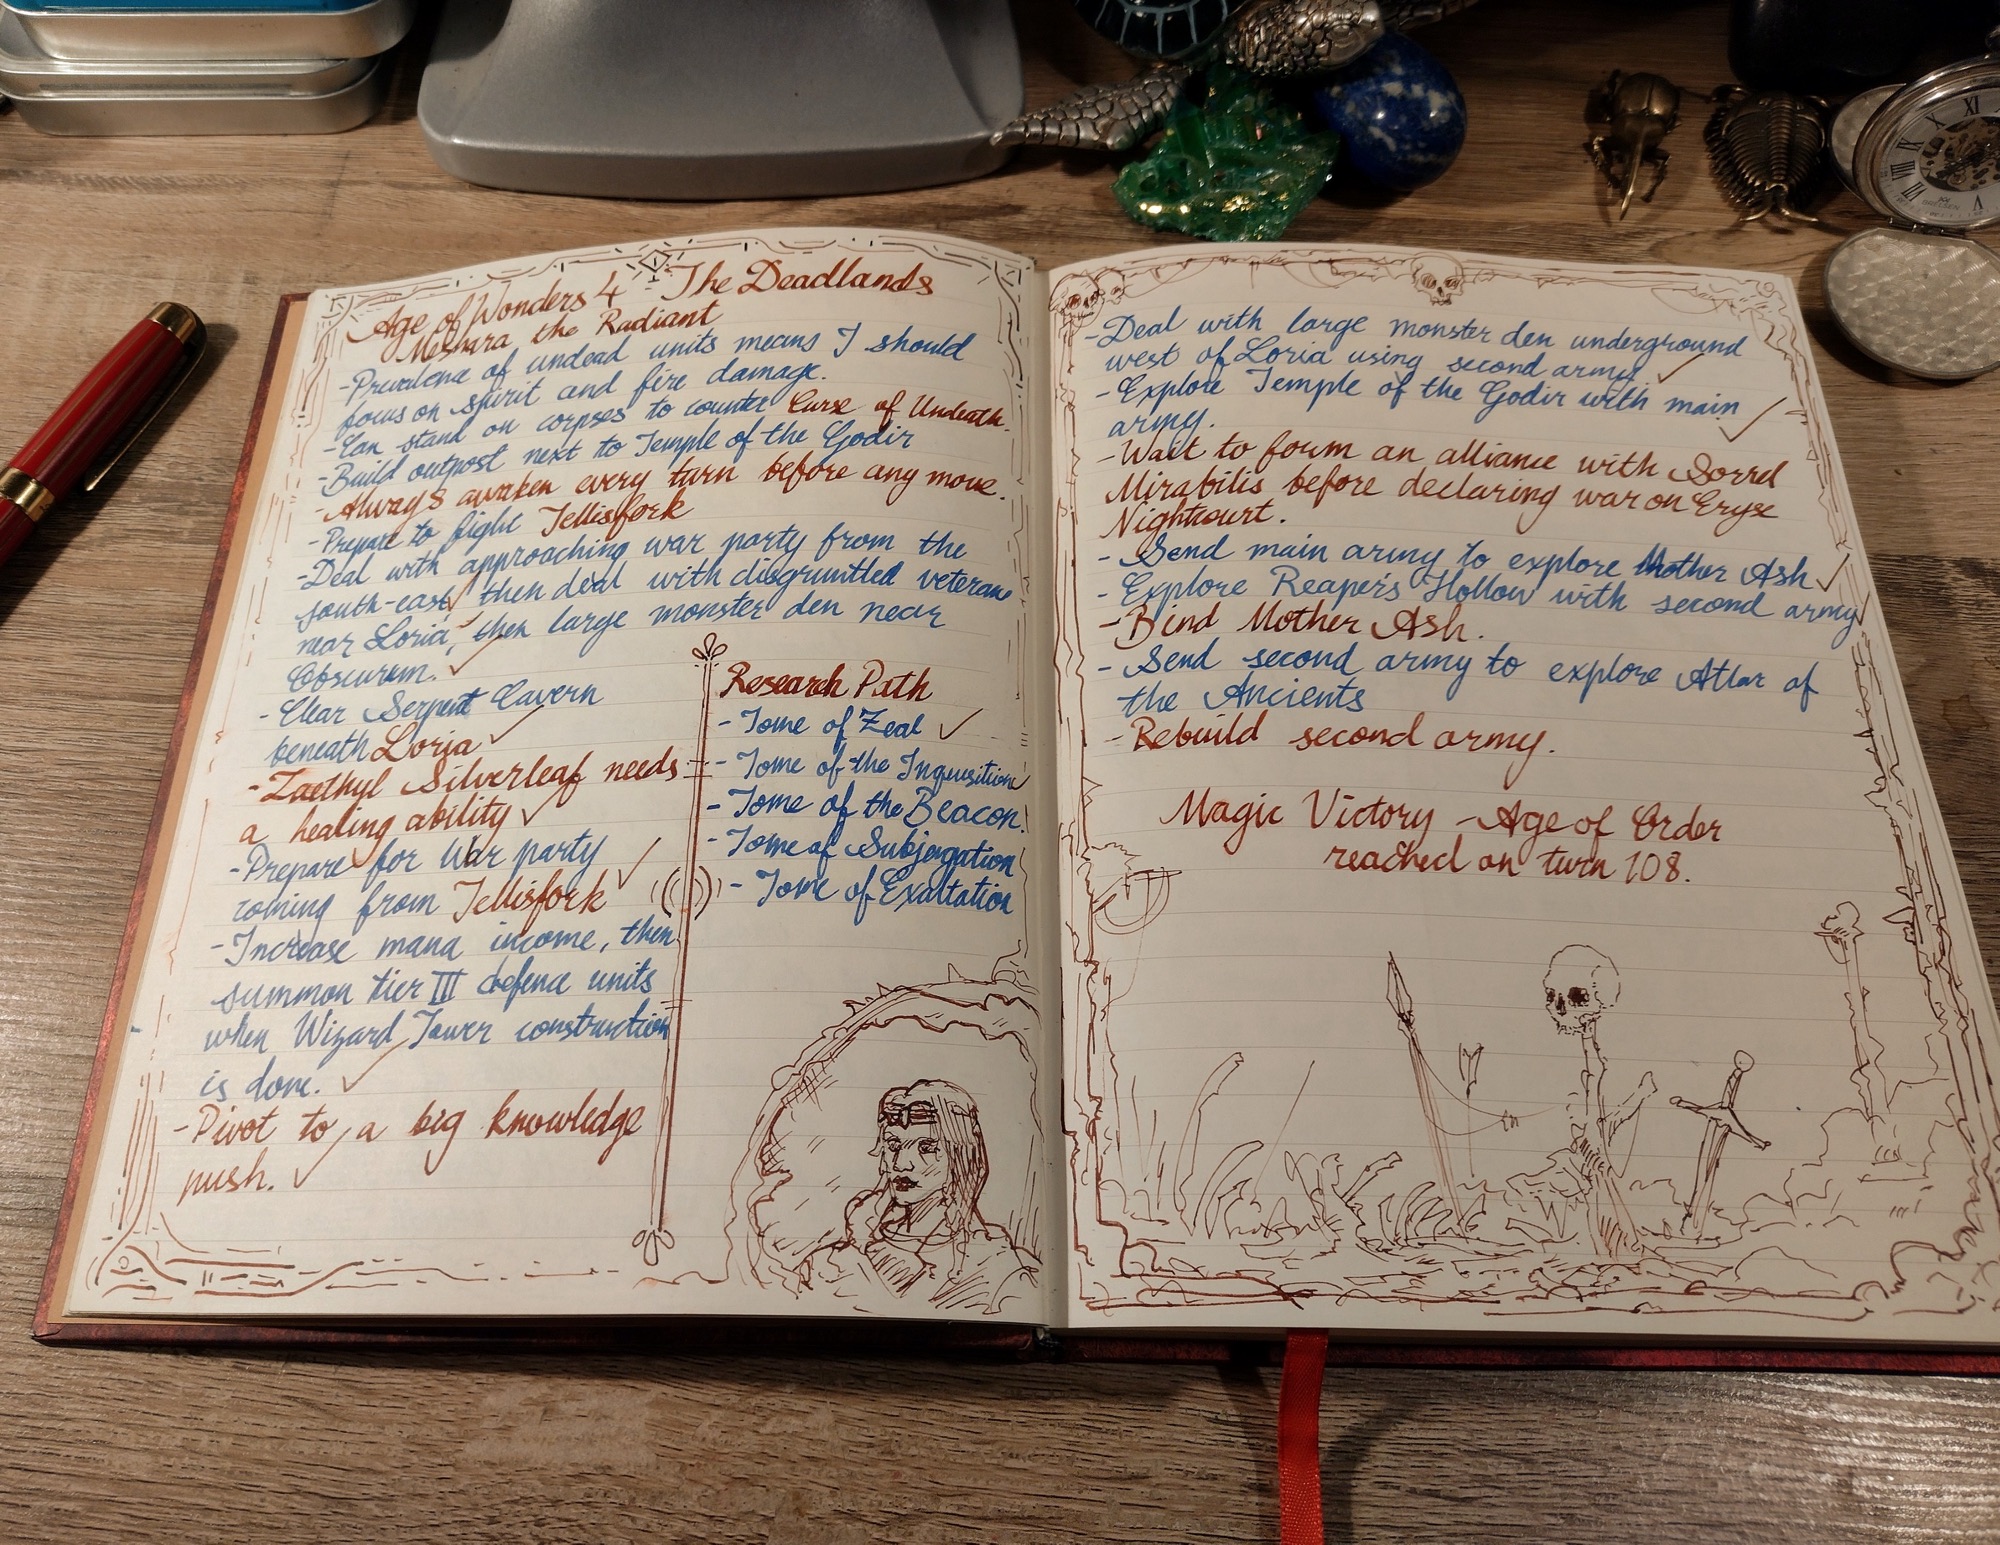 Age of Wonders 4 The Deadlands
Meshara the Radiant
-Prevalence of undead units means I should
focus on spirit and fire damage.
-Can stand on corpses to counter Curse of Undeath.
-Build outpost next to Temple of the Godir
-Always awaken every turn before any move.
-Prepare to fight Tellisfork
-Deal with approaching war party from the
south-east ✓ then deal with disgruntled veterans
near Loria, ✓ then large monster den near
Obscurum. ✓
-Clear Serpent Cavern
beneath Loria ✓
-Zaethyl Silverleaf needs
a healing ability ✓
-Prepare for War party
coming from Tellisfork ✓
-Increase mana income, then
summon tier III defence units
when Wizard Tower construction
is done. ✓
-Pivot to a big knowledge
push. ✓
Research Path
-Tome of Zeal ✓
-Tome of the Inquisition
-Tome of the Beacon
-Tome of Subjugation
-Tome of Exaltation
-Deal with large monster den underground
west of Loria using second army ✓
-Explore Temple of the Godir with main
army. ✓
-Wait to form an alliance with Sorrel
Mirabilis before declaring war on Eryse
Nightcourt.
-Send main army to explore Mother Ash ✓
-Explore Reaper's Hollow with second army ✓
-Bind Mother Ash.
-Send second army to explore Altar of
the Ancients
-Rebuild second army.
Magic Victory - Age of Order
reached on turn 108.
XI
X